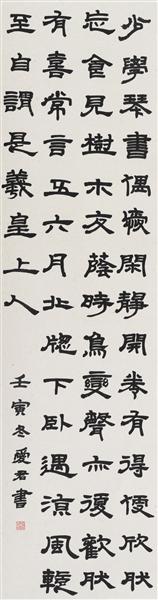 少學琴書偶愛閑靜開卷有得便欣肰
忘食見樹木交蔭時鳥變聲亦復歡肰
有喜常言五六月北牕下臥遇涼風暫
至自謂是羲皇上人
壬寅冬愛君書